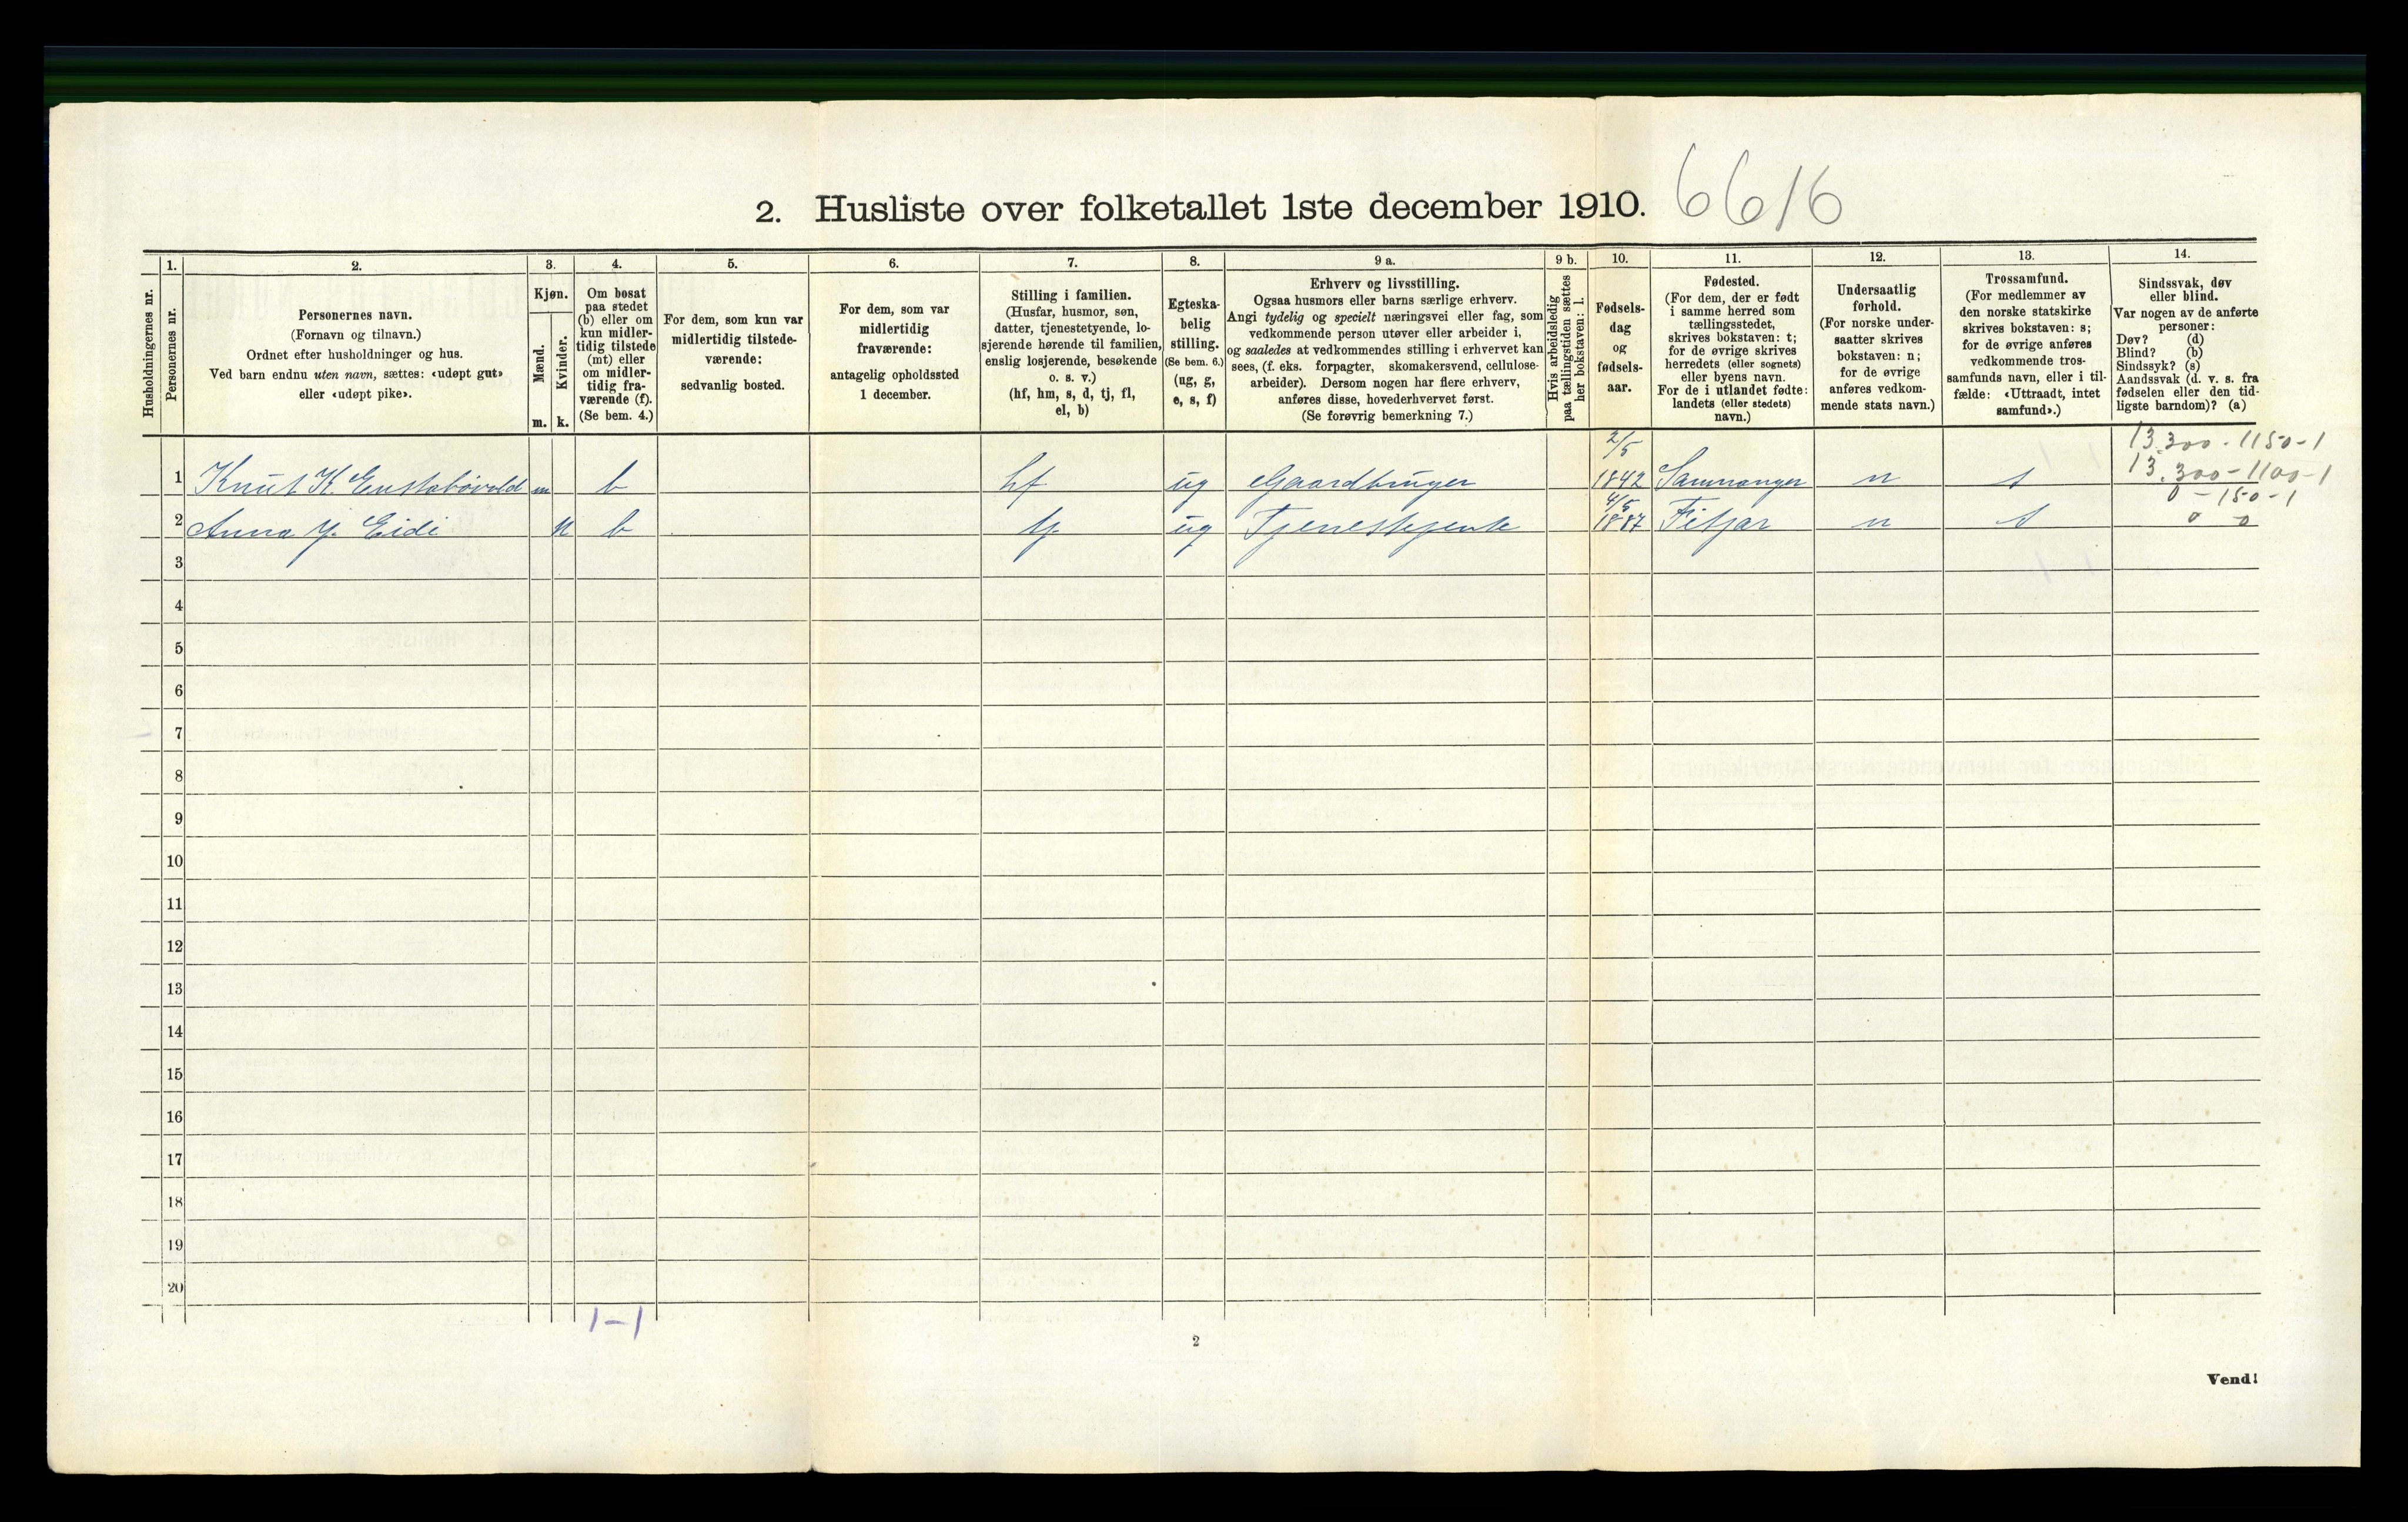 2. Husliste over folketallet 1ste december 1910. 6616
Husholdningernes nr.
1.
Personernes nr.
2.
Personernes navn.
(Fornavn og tilnavn.)
Ordnet efter husholdninger og hus.
Ved barn endnu uten navn, sættes: «udøpt gut»
eller «udøpt pike».
3.
Kjøn.
Mænd.
Kvinder.
m. k.
4.
Om bosat
paa stedet
(b) eller om
kun midler-
tidig tilstede
(mt) eller
om midler-
tidig fra-
værende (f).
(Se bem. 4.)
5.
For dem, som kun var
midlertidig tilstede-
værende:
sedvanlig bosted.
6.
For dem, som var
midlertidig
fraværende:
antagelig opholdssted
1 december.
7.
Stilling i familien.
(Husfar, husmor, søn,
datter, tjenestetyende, lo-
sjerende hørende til familien,
enslig losjerende, besøkende
o. s. v.)
(hf, hm, s, d, tj, fl,
el, b)
8.
Egteska-
belig
stilling.
(Se bem. 6.)
(ug, g,
e, s, f)
9 a.
Erhverv og livsstilling.
Ogsaa husmors eller barns særlige erhverv.
Angi tydelig og specielt næringsvei eller fag, som
vedkommende person utøver eller arbeider i,
og saaledes at vedkommendes stilling i erhvervet kan
sees, (f. eks. forpagter, skomakersvend, cellulose-
arbeider). Dersom nogen har flere erhverv,
anføres disse, hovederhvervet først.
(Se forøvrig bemerkning 7.)
9 b.
Hvis arbeidsledig
paa tællingstiden sættes
her bokstaven: l.
10.
Fødsels-
dag
og
fødsels-
aar.
11.
Fødested.
(For dem, der er født
i samme herred som
tællingsstedet,
skrives bokstaven: t;
for de øvrige skrives
herredets (eller sognets)
eller byens navn.
For de i utlandet fødte:
landets (eller stedets)
navn.)
12.
Undersaatlig
forhold.
(For norske under-
saatter skrives
bokstaven: n;
for de øvrige
anføres vedkom-
mende stats navn.)
13.
Trossamfund.
(For medlemmer av
den norske statskirke
skrives bokstaven: s;
for de øvrige anføres
vedkommende tros-
samfunds navn, eller i til-
fælde: «Uttraadt, intet
samfund».)
14.
Sindssvak, døv
eller blind.
Var nogen av de anførte
personer:
Døv? (d)
Blind? (b)
Sindssyk? (s)
Aandssvak (d. v. s. fra
fødselen eller den tid-
ligste barndom)? (a)
13.300-1150-1
13.300-1100-1
0-150-1
0 0
1 Knut K. m b hf ug Gaardbruger 2/5 1842 Samnanger n s
2 Anna J. Eide k b tj ug Tjenestejente 4/5 1887 Fitjar n s
3
4
5
6
7
8
9
10
11
12
13
14
15
16
17
18
19
20
1-1
2
Vend!